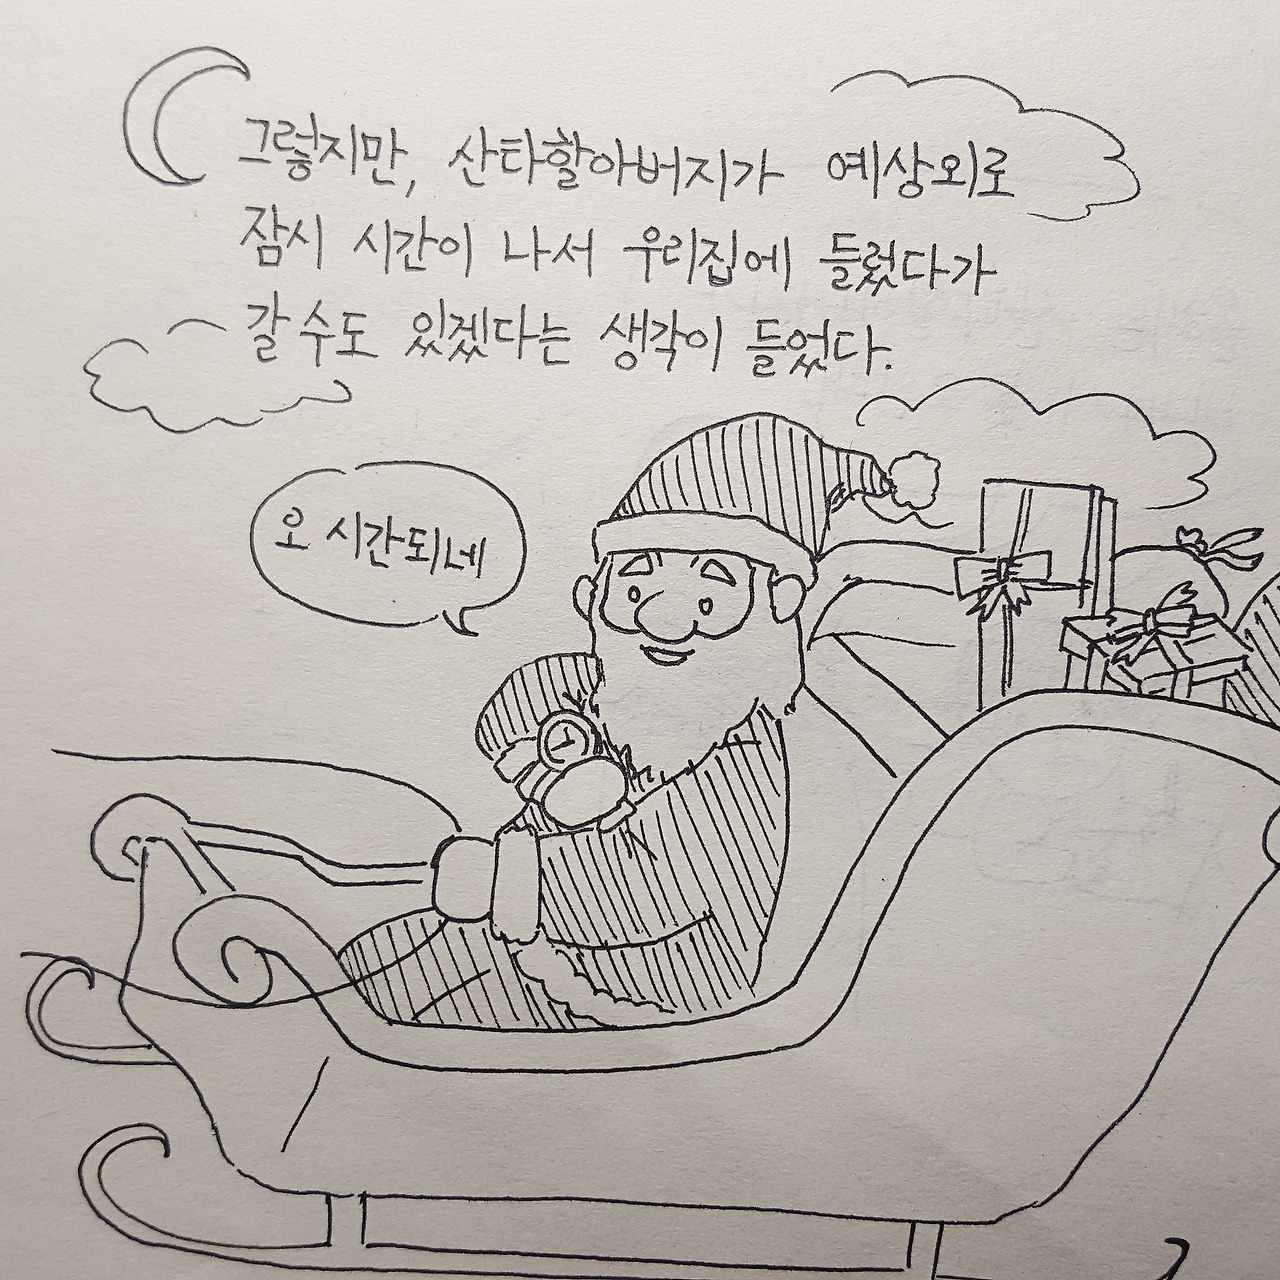 그렇지만, 산타할아버지가 예상외로
잠시 시간이 나서 우리집에 들렀다가
갈 수도 있겠다는 생각이 들었다.
오 시간되네